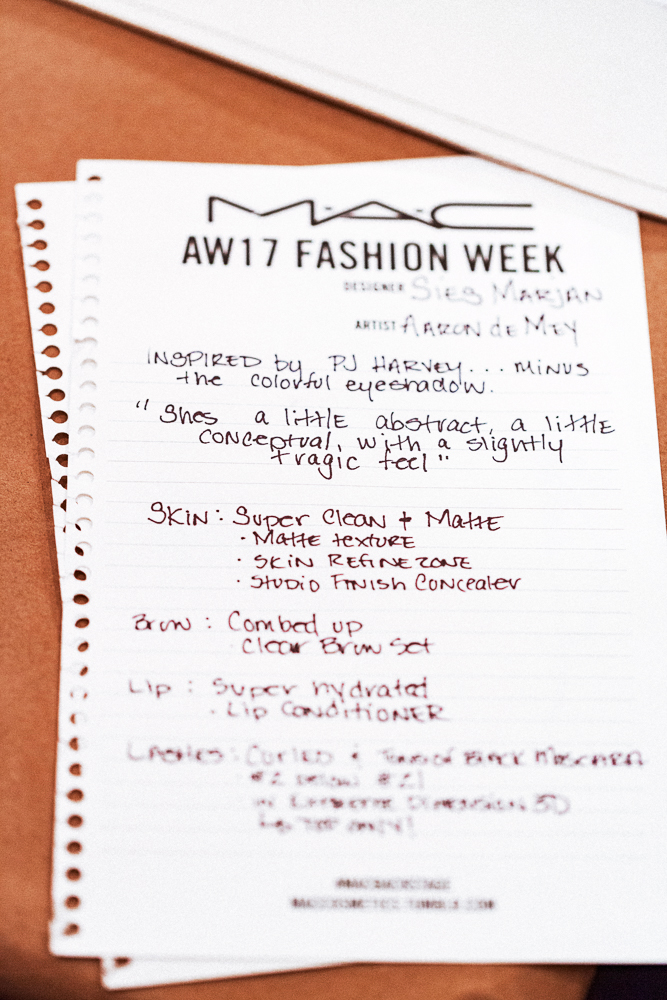 MAC
AW17 FASHION WEEK
DESIGNER Sies Marjan
ARTIST Aaron de Mey
INSPIRED by PJ HARVEY... MINUS
the colorful eyeshadow.
"Shes a little abstract, a little
conceptual, with a slightly
tragic feel"
SKIN: Super Clean + Matte
· Matte texture
· SKIN REFINEZONE
· Studio Finish Concealer
Brow: Combed up
Clear Brow Set
Lip: Super hydrated
· Lip CONDITIONER
LASHES: CURLED + Black MASCARA
#2 below #21
in Dimension 3D
top only!